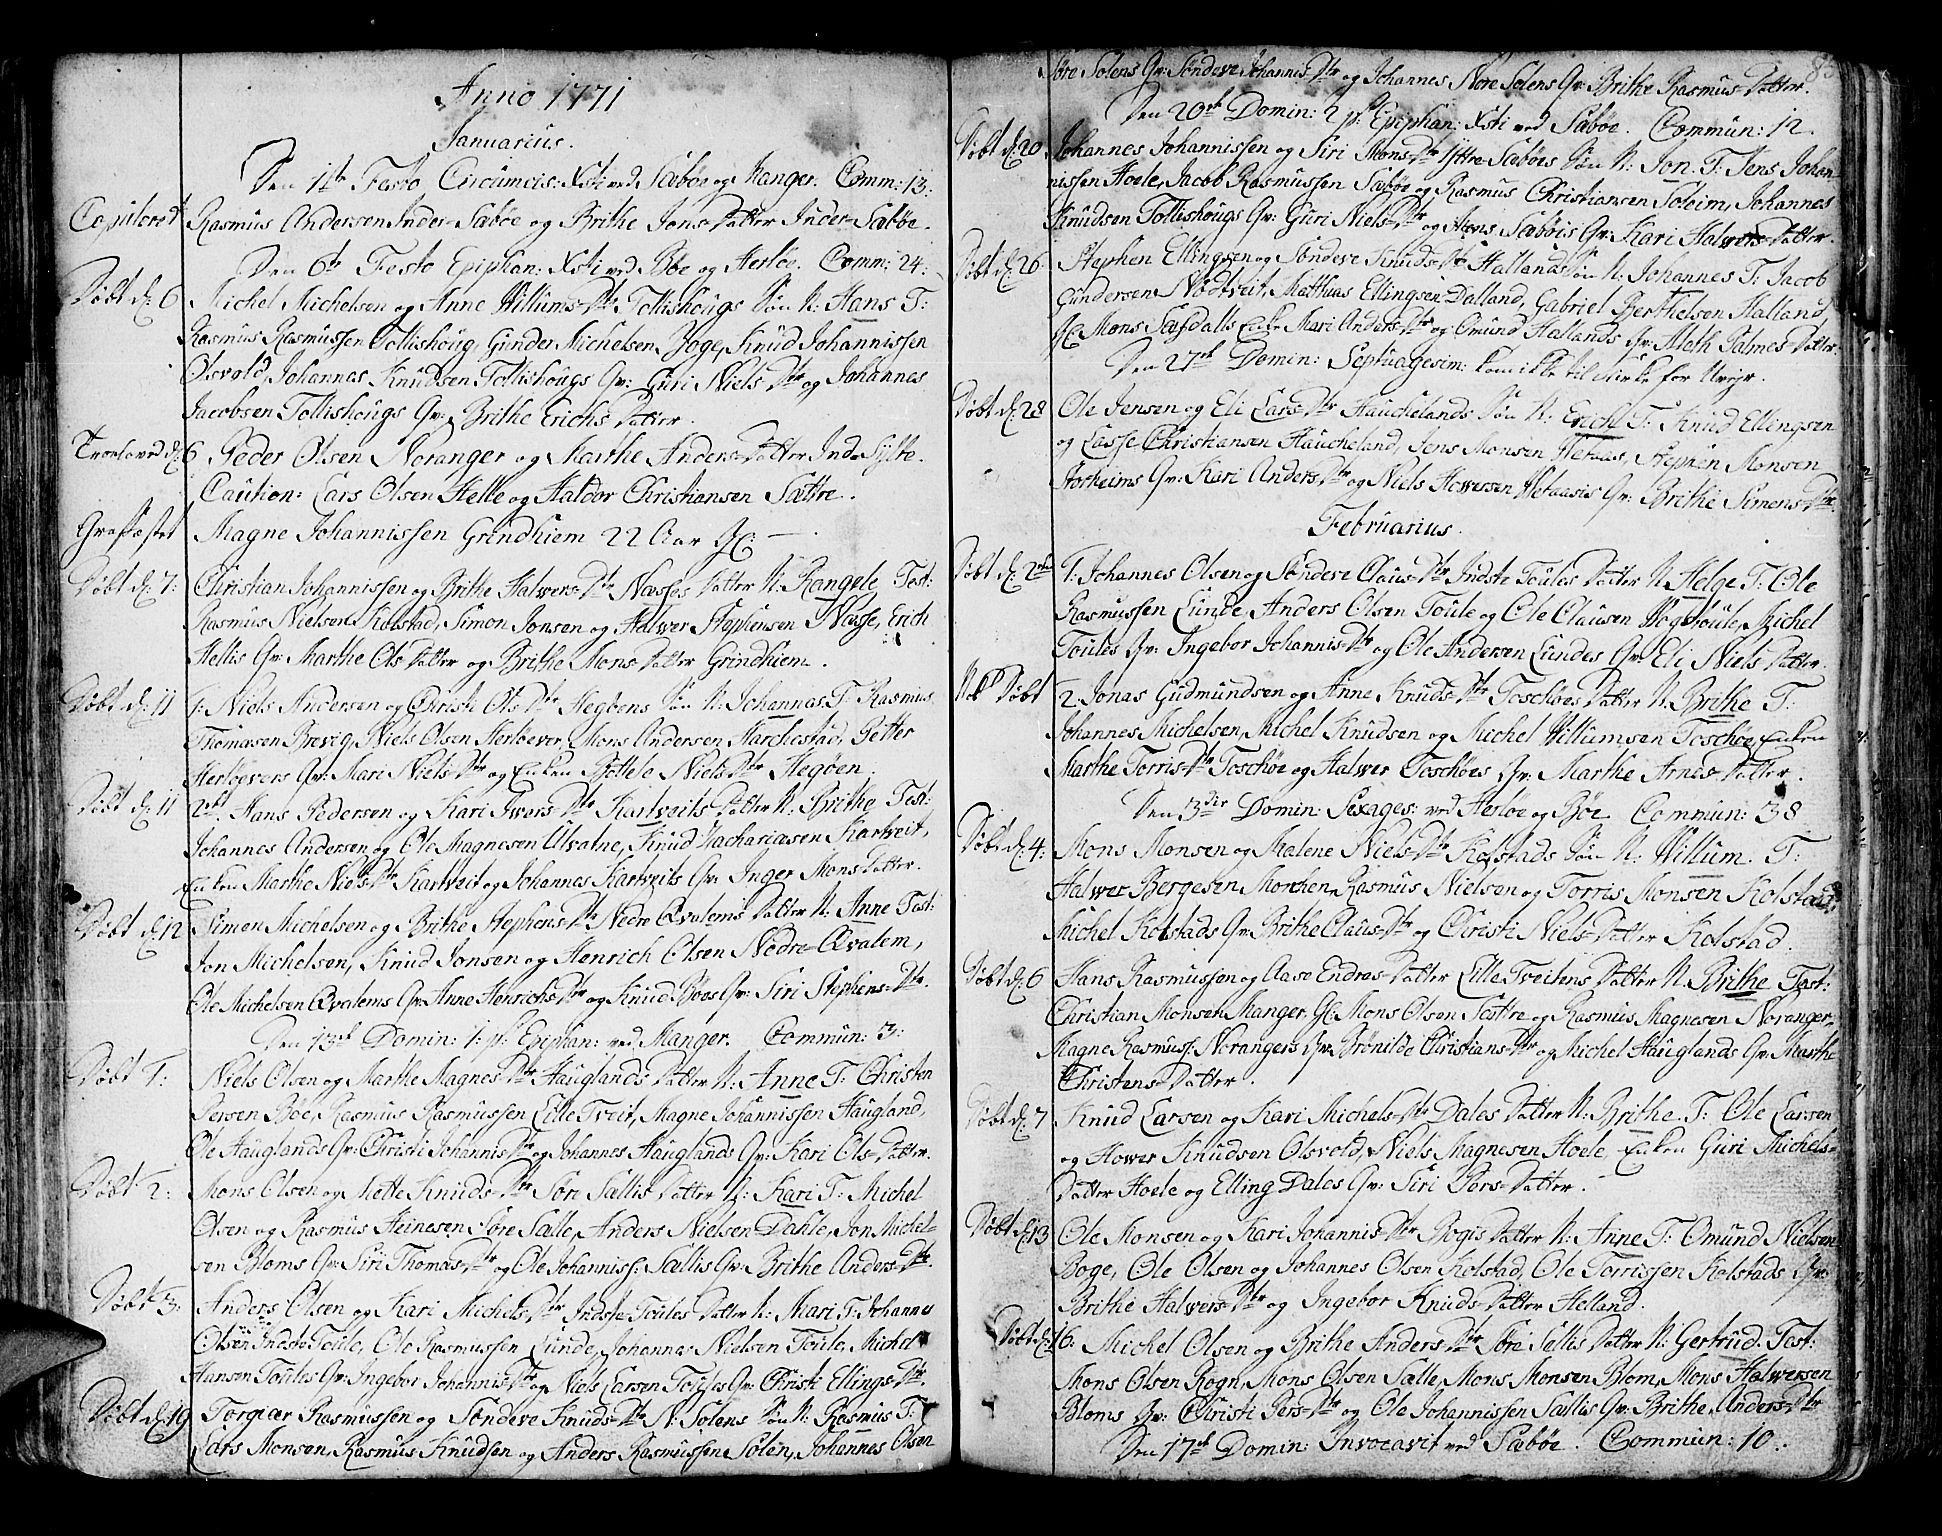 Anno 1771
Januarius.
Den 1te Festo Circumcis: Xsti ved Sæbøe og Manger. Comm: 13.
Copuleret Rasmus Andersen Inder-Sæbøe og Brithe Jons Datter Inder-Sæbøe.
Den 6te Festo Epiphan: Xsti ved Bøe og Herløe. Comm: 24.
Døbt d: 6 Michel Michelsen og Anne Willums Dtr Tollishougs Søn N: Hans T:
Rasmus Rasmussen Tollishoug, Gunder Michelsen Boge, Knud Johannissen
Olsvold, Johannes Knudsen Tollishougs Qv: Guri Niels Dtr og Johannes
Jacobsen Tollishougs Qv: Brithe Erichs Datter.
Troeloved d: 6 Peder Olsen Noranger og Marthe Anders Datter Inde Sylte.
Caution: Lars Olsen Helle og Haldor Christiansen Sættre.
Grafæstet Magne Johannissen Grindhiem 22 Aar
Døbt d: 7: Christian Johannissen og Brithe Halvers Dtr Næsses Datter N: Rangele, Test:
Rasmus Nielsen Kolstad, Simon Jonsen og Halver Stephensen Næsse, Erich
Hellis Qv: Marthe Ols Datter og Brithe Mons Datter Grindhiem.
Døbt d: 11 1: Niels Andersen og Christi Ols Dtr Hegøens Søn N: Johannas T: Rasmus
Thomæsen Brevig, Niels Olsen Herløever, Mons Andersen Harchestad, Petter
Herløevers Qv: Mari Niels Dtr og Enken Bottele Niels Dtr Hegøen.
Døbt d: 11 2det Hans Pedersen og Kari Ivers Dtr Kartveits Datter N: Brithe Test:
Johannes Andersen og Ole Magnesen Ulvatne, Knud Zachariasen Kartveit,
Enken Marthe Niels Dtr Kartveit og Johannes Kartveits Qv: Inger Mons Datter.
Døbt d: 12 Simon Michelsen og Brithe Stephens Dtr Nedre Qvalems Datter N: Anne Test:
Jon Michelsen, Knud Jonsen og Henrich Olsen Nedre Qvalem,
Ole Michelsen Qvalems Qv: Anne Henrichs Dtr og Knud Bøes Qv: Siri Stephens Dtr.
Den 13de Domin: 1 p: Epiphan: ved Manger. Commun: 3:
Døbt 1: Niels Olsen og Marthe Magnes Dtr Hauglands Datter N: Anne T: Christen
Persen Bøe, Rasmus Rasmussen Lille Tveit, Magne Johannissen Haugland,
Ole Hauglands Qv: Christi Johannis Dtr og Johannes Hauglands Qv: Kari Ols Datter.
Døbt 2: Mons Olsen og Mette Knuds Dtr Søre Sællis Datter N: Kari T: Michel
Olsen og Rasmus Heinesen Søre Sælle, Anders Nielsen Dahle, Jon Michel-
sen Bloms Qv: Siri Thomas Dtr og Ole Johanniss: Sællis Qv: Brithe Anders Dtr.
Døbt 3: Anders Olsen og Kari Michels Dtr Indste Toules Datter N: Mari T: Johannes
Olsen Indste Toule, Ole Rasmussen Lunde, Johannes Nielsen Toule, Michel
Hansen Toules Qv: Ingebor Johannis Dtr og Niels Larsen Toules Qv: Christi Ellings Dtr.
Døbt d: 19 Torgiær Rasmussen og Søndeve Knuds Dtr N: Solens Søn N: Rasmus T:
Lars Monsen, Rasmus Knudsen og Anders Rasmussen Solen, Johannes Olsen
85
Søre Solens Qv: Søndeve Johannes Dtr og Johannes Nore Solens Qv: Brithe Rasmus Datter.
Den 20de Domin: 2 p: Epiphan: Xsti ved Sæbøe. Commun: 12.
Døbt d: 20 Johannes Johannissen og Siri Mons Dtr Yttre Sæbøes Søn N: Jon. T: Jens Johan-
nissen Hoele, Jacob Rasmussen Sæbøe og Rasmus Christiansen Soleim, Johannes
Knudsen Tollishougs Qv: Guri Niels Dtr og Mons Sæbøis Qv: Kari Halvers Datter.
Døbt d: 26 Stephen Ellingsen og Søndeve Knuds Dtr Hallands Søn N: Johannes T: Jacob
Gundersen Nødtveit, Matthias Ellingsen Dalland, Gabriel Berthelsen Halland,
Mons Sæfdalls Enke Mari Anders Dtr og Omund Hallands Qv: Aleth Palmes Datter.
Den 27de Domin: Septuagesim: kom ikke til Kirke for Uvejr.
Døbt d: 28 Ole Jensen og Eli Lars Dtr Hauchelands Søn N: Erich T: Knud Ellingsen
og Lasse Christiansen Haucheland, Jens Monsen Hetaas, Stephen Monsen
Horheims Qv: Kari Anders Dtr og Niels Howersen Hetaasis Qv: Brithe Simens Dtr.
Februarius.
Døbt d: 2den 1: Johannes Olsen og Søndeve Claus Dtr Indste Toules Datter N: Helge T: Ole
Rasmussen Lunde, Anders Olsen Toule og Ole Clausen Høgstoule, Michel
Toules Qv: Ingebor Johannis Dtr og Ole Andersen Lundes Qv: Eli Niels Datter.
Døbt 2. Jonas Gudmundsen og Anne Knuds Dtr Toschøes Datter N: Brithe T:
Johannes Michelsen, Michel Knudsen og Michel Willumsen Toschøe, Enken
Marthe Torris Dtr Toschøe og Halver Toschøes Qv: Marthe Arnes Datter.
Den 3die Domin: Sexages: ved Herløe og Bøe. Commun: 38
Døbt d: 4: Mons Monsen og Malene Niels Dtr Kolstads Søn N: Willum. T:
Halver Bergesen Morchen, Rasmus Nielsen og Torris Monsen Kolstad,
Michel Kolstads Qv: Brithe Claus Dtr og Christi Niels Datter Kolstad.
Døbt d: 6 Hans Rasmussen og Aase Endres Datter Lille Tveitens Datter N: Brithe Test:
Christian Monsen Manger, Mons Olsen Sættre og Rasmus Magnesen Noranger,
Magne Rasmuss: Norangers Qv: Brønilde Christians Dtr og Michel Hauglands Qv: Marthe
Christens Datter.
Døbt d: 7 Knud Larsen og Kari Michels Dtr Dales Datter N: Brithe T: Ole Larsen
og Hower Knudsen Olsvold, Niels Magnesen Hoele, Enken Guri Michels
Datter Hoele og Elling Dales Qv: Siri Pers Datter.
Døbt d: 13 Ole Monsen og Kari Johannis Dtr Bogis Datter N: Anne T: Omund Nielsen
Boge, Ole Olsen og Johannes Olsen Kolstad, Ole Torrissen Kolstads Qv:
Brithe Halvers Dtr og Ingebor Knuds Datter Helland.
Døbt d: 16: Michel Olsen og Brithe Anders Dtr Søre Sellis Datter N: Gertrud. Test:
Mons Olsen Rogn, Mons Olsen Sælle, Mons Monsen Blom, Mons Halversen
Bloms Qv: Christi Pers Dtr og Ole Johannissen Sællis Qv: Brithe Anders Dtr
Den 17de Domin: Invocavit ved Sæbøe. Commun: 10.